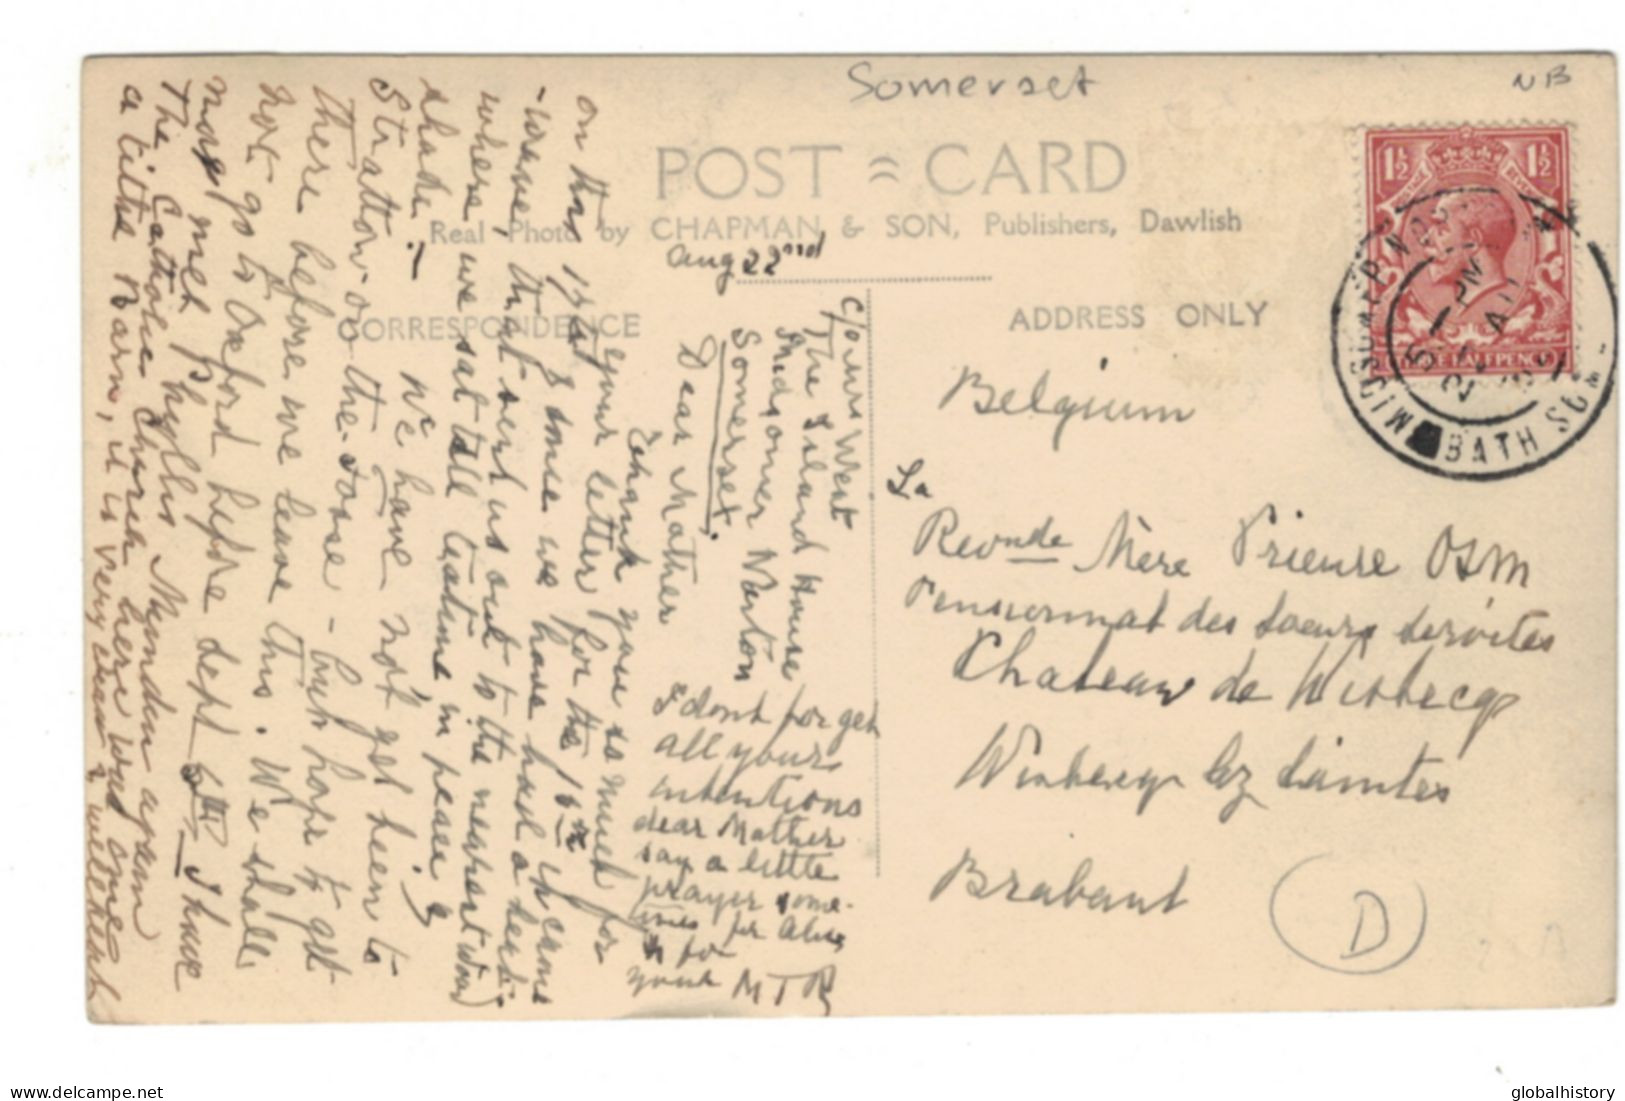 Somerset
NB
POST CARD
Real Photo by CHAPMAN & SON, Publishers, Dawlish
Aug 22nd
CORRESPONDENCE
ADDRESS ONLY
1½ 1½
BATH
Belgium
La
Revnde Mère Prieure OSM
Pensionnat des Soeurs Servites
Chateau de Wisbecq
Wisbecq lez Saintes
Brabant
D
c/o Mrs West
The Island House
Midsomer Norton
Somerset.
Dear Mother
Thank you so much for
your letter for the 16th which came
on the 17th & since we have had a heat
-wave, that sent us out to the nearest wood
where, we sat till teatime in peace &
shade! We have not been to
Stratton-on-the-Fosse - but hope to get
there before we leave this. We shall
not go to Oxford before Sept 5th I have
now met Phyllis Munden again
The Catholic Church here was once
a tithe barn, it is very
I dont forget
all your
intentions
dear Mother
say a little
prayer some-
times for
& for
your MTR
globalhistory
delcampe.net